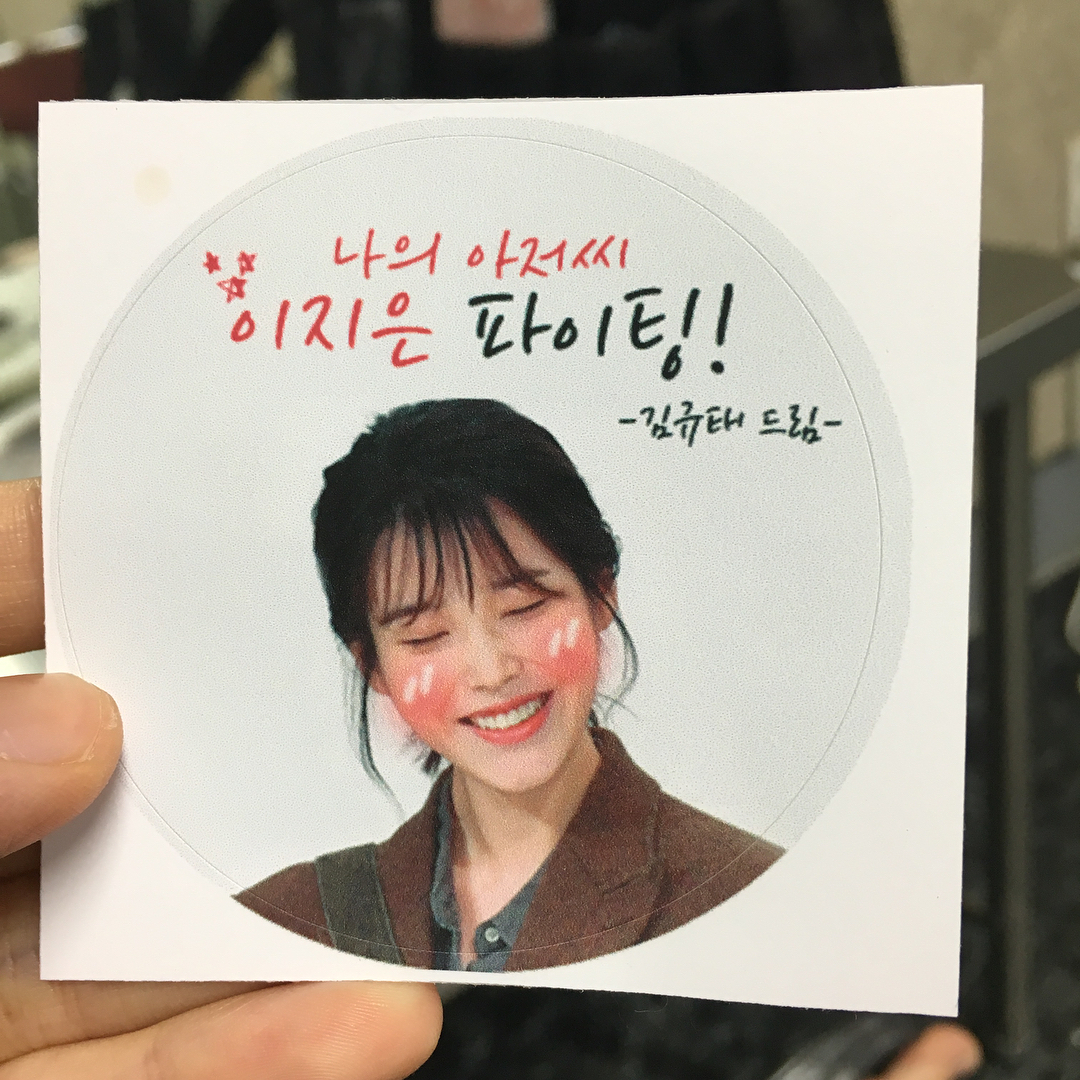 나의 아저씨
이지은 파이팅!
-김규태 드림-